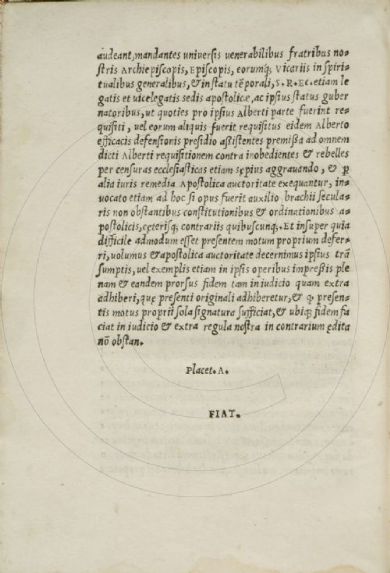 audeant, mandantes universis venerabilibus fratribus no-
stris Archiepiscopis, Episcopis, eorumq; Vicariis in spiri-
tualibus generalibus, & in statu tẽporali, S. R. EC. etiam le
gatis et vicelegatis sedis apostolicæ, ac ipsius status guber
natoribus, ut quoties pro ipsius Alberti parte fuerint re-
quisiti, uel eorum aliquis fuerit requisitus eidem Alberto
efficacis defensionis presidio assistentes premissa ad omnem
dicti Alberti requisitionem contra inobedientes & rebelles
per censuras ecclesiasticas etiam sępius aggrauando, & p
alia iuris remedia Apostolica auctoritate exequantur, in-
uocato etiam ad hoc si opus fuerit auxilio brachii secula-
ris non obstantibus constitutionibus & ordinationibus a-
postolicis, cęterisq; contrariis quibuscunq;. Et insuper quia
difficile admodum esset presentem motum proprium defer-
ri, uolumus & apostolica auctoritate decernimus ipsius trã
sumptis, uel exemplis etiam in ipsis operibus impressis ple
nam & eandem prorsus fidem tam in iudicio quam extra
adhiberi, que presenti originali adhiberetur, & q presen-
tis motus proprii sola signatura sufficiat, & ubiq; fidem fa
ciat in iudicio & extra regula nostra in contrarium edita
nõ obstan.
Placet. A.
FIAT.